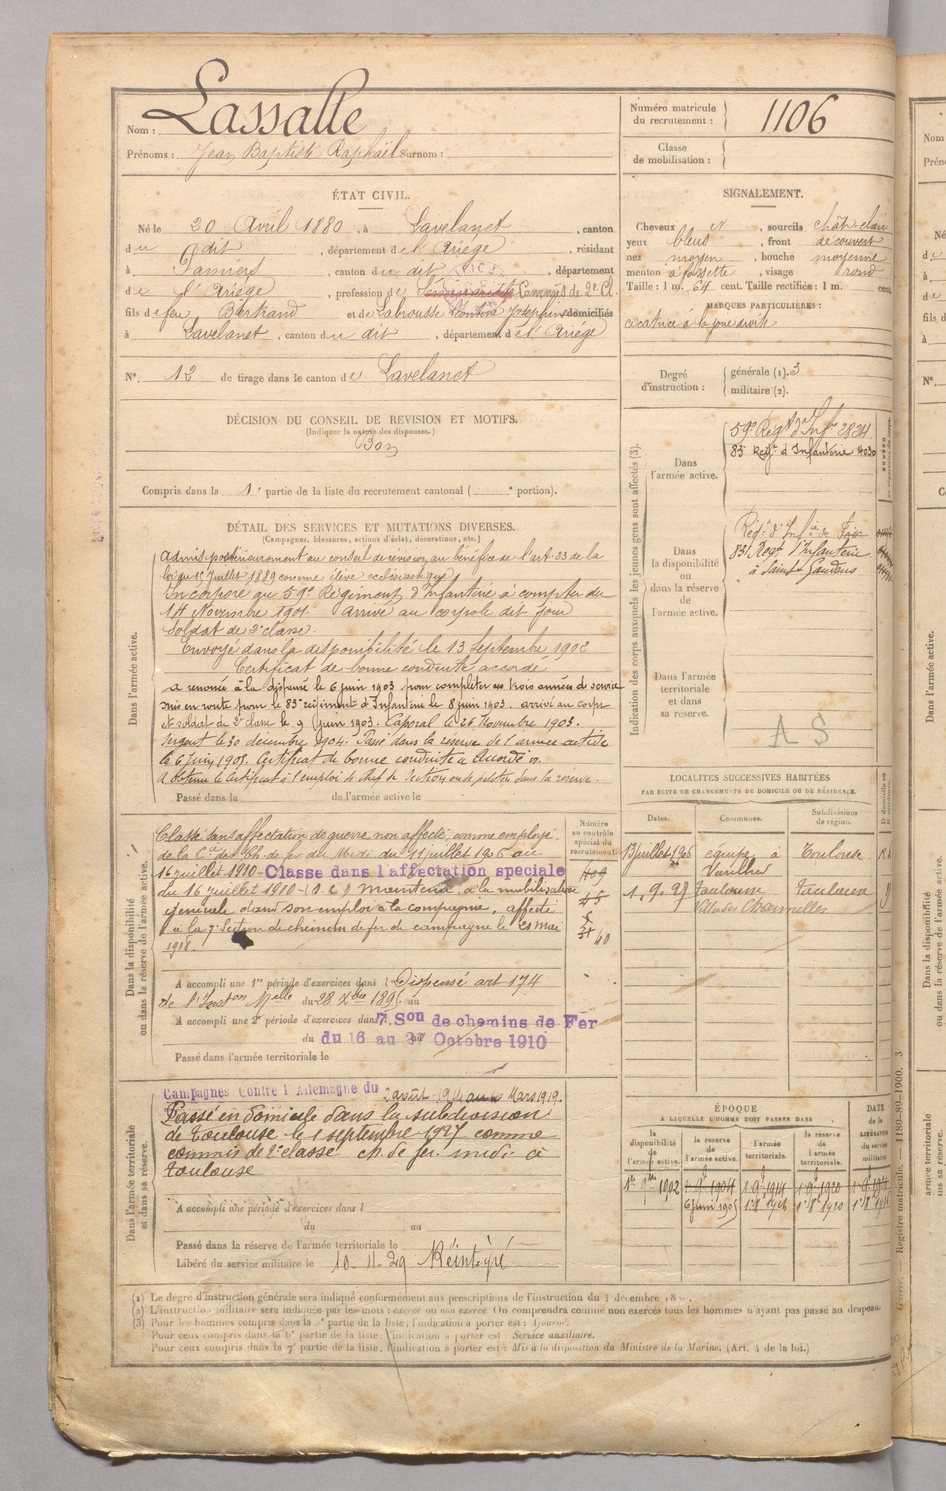 Nom : Lassalle
Prénoms : Jean Baptiste Raphaël Surnom :
Numéro matricule du recrutement : 1106
Classe de mobilisation :
ÉTAT CIVIL.
Né le 20 Avril 1880, à Lavelanet, canton
du dit, département de l'Ariège, résidant
à Pamiers, canton du dit, département
de l'Ariège, profession de Commis de 2e Cl.
fils de feu Bertrand et de Labrousse Josephine domiciliés
à Lavelanet, canton du dit, département de l'Ariège
N° 12 de tirage dans le canton de Lavelanet
SIGNALEMENT.
Cheveux et, sourcils chât-clair
yeux bleus, front découvert
nez moyen, bouche moyenne
menton à fossette, visage rond
Taille : 1 m. 64 cent. Taille rectifiée : 1 m. cent.
MARQUES PARTICULIÈRES :
cicatrice à la joue droite
Degré d'instruction : générale (1). 3
militaire (2).
DÉCISION DU CONSEIL DE REVISION ET MOTIFS.
(Indiquer la nature des dispenses.)
Bon
Compris dans la 1e partie de la liste du recrutement cantonal ( e portion).
DÉTAIL DES SERVICES ET MUTATIONS DIVERSES.
(Campagnes, blessures, actions d'éclat, décorations, etc.)
Dans l'armée active.
Admis postérieurement au conseil de révision, au bénéfice de l'art. 23 de la
loi du 15 Juillet 1889 comme élève ecclésiastique
Incorporé au 59e Régiment d'Infanterie à compter du
14 Novembre 1901. Arrivé au corps le dit jour
soldat de 2e classe.
Envoyé dans la disponibilité le 13 Septembre 1902
Certificat de bonne conduite accordé
a renoncé à la dispense le 6 juin 1903 pour compléter ses trois années de service
mis en route pour le 83e régiment d'Infanterie le 8 juin 1903. arrivé au corps
et soldat de 2e classe le 9 juin 1903. Caporal le 26 Novembre 1903.
Sergent le 30 décembre 1904. Passé dans la réserve de l'armée active
le 6 Juin 1905. Certificat de bonne conduite « Accordé ».
A obtenu le Certificat à l'emploi de Chef de Section ou de peloton dans la réserve.
Passé dans la de l'armée active le
Indication des corps auxquels les jeunes gens sont affectés (3).
Dans l'armée active.
59e Régt d'Infie 2824
83e Regt d'Infanterie 4030
Dans la disponibilité ou dans la réserve de l'armée active.
Régt d'Infie de Foix
83e Regt d'Infanterie
à Saint Gaudens
Dans l'armée territoriale et dans sa réserve.
A S
LOCALITÉS SUCCESSIVES HABITÉES
PAR SUITE DE CHANGEMENTS DE DOMICILE OU DE RÉSIDENCE.
Dates. Communes. Subdivisions de région.
13 juillet 1906 équipe à Varilhes Toulouse R
1. 9. 27 Toulouse Toulouse D
Villa des Charmilles
Dans la disponibilité ou dans la réserve de l'armée active.
Numéro au contrôle spécial du recrutement.
Classé sans affectation de guerre, non affecté, comme employé
de la Cie des Ch. de fer du Midi du 11 juillet 1906 au
16 juillet 1910 - Classé dans l'affectation spéciale
du 16 juillet 1910 - maintenu, à la mobilisation
générale dans son emploi à la compagnie, affecté
à la 7e Section de chemins de fer de campagne le 21 mai
1918.
409
45
40
A accompli une 1re période d'exercices dans l Dispensé art 174
de l'Inston Melle du 28 Xbre 1895 au
A accompli une 2e période d'exercices dans 7. Son de chemins de Fer
du 16 au 27 Octobre 1910
Passé dans l'armée territoriale le
Dans l'armée territoriale et dans sa réserve.
Campagnes Contre l'Allemagne du 2 août 1914 au Mars 1919.
Passé en domicile dans la subdivision
de Toulouse le 1 septembre 1927 comme
commis de 2e classe ch. de fer midi à
Toulouse
A accompli une période d'exercices dans l
du au
Passé dans la réserve de l'armée territoriale le
Libéré du service militaire le 10-11-29 Réintégré
ÉPOQUE
À LAQUELLE L'HOMME DOIT PASSER DANS
la disponibilité de l'armée active. la réserve de l'armée active. l'armée territoriale. la réserve de l'armée territoriale. DATE de la LIBÉRATION du service militaire.
1902 1904 1914 1920
6 Juin 1905
(1) Le degré d'instruction générale sera indiqué conformément aux prescriptions de l'instruction du 4 décembre 18
(2) L'instruction militaire sera indiquée par les mots : exercé ou non exercé. On comprendra comme non exercés tous les hommes n'ayant pas passé au drapeau.
(3) Pour les hommes compris dans la partie de la liste, l'indication à porter est : Ajourné.
Pour ceux compris dans la 6e partie de la liste, l'indication à porter est : Service auxiliaire.
Pour ceux compris dans la 7e partie de la liste, l'indication à porter est : Mis à la disposition du Ministre de la Marine. (Art. 4 de la loi.)
Registre matricule. — 1180-80-1900. 3